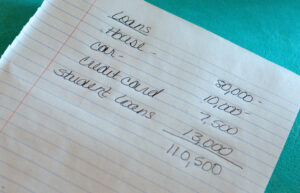 Loans
House - 80,000 -
Car - 10,000 -
Credit card 7,500
Student loans 13,000
110,500